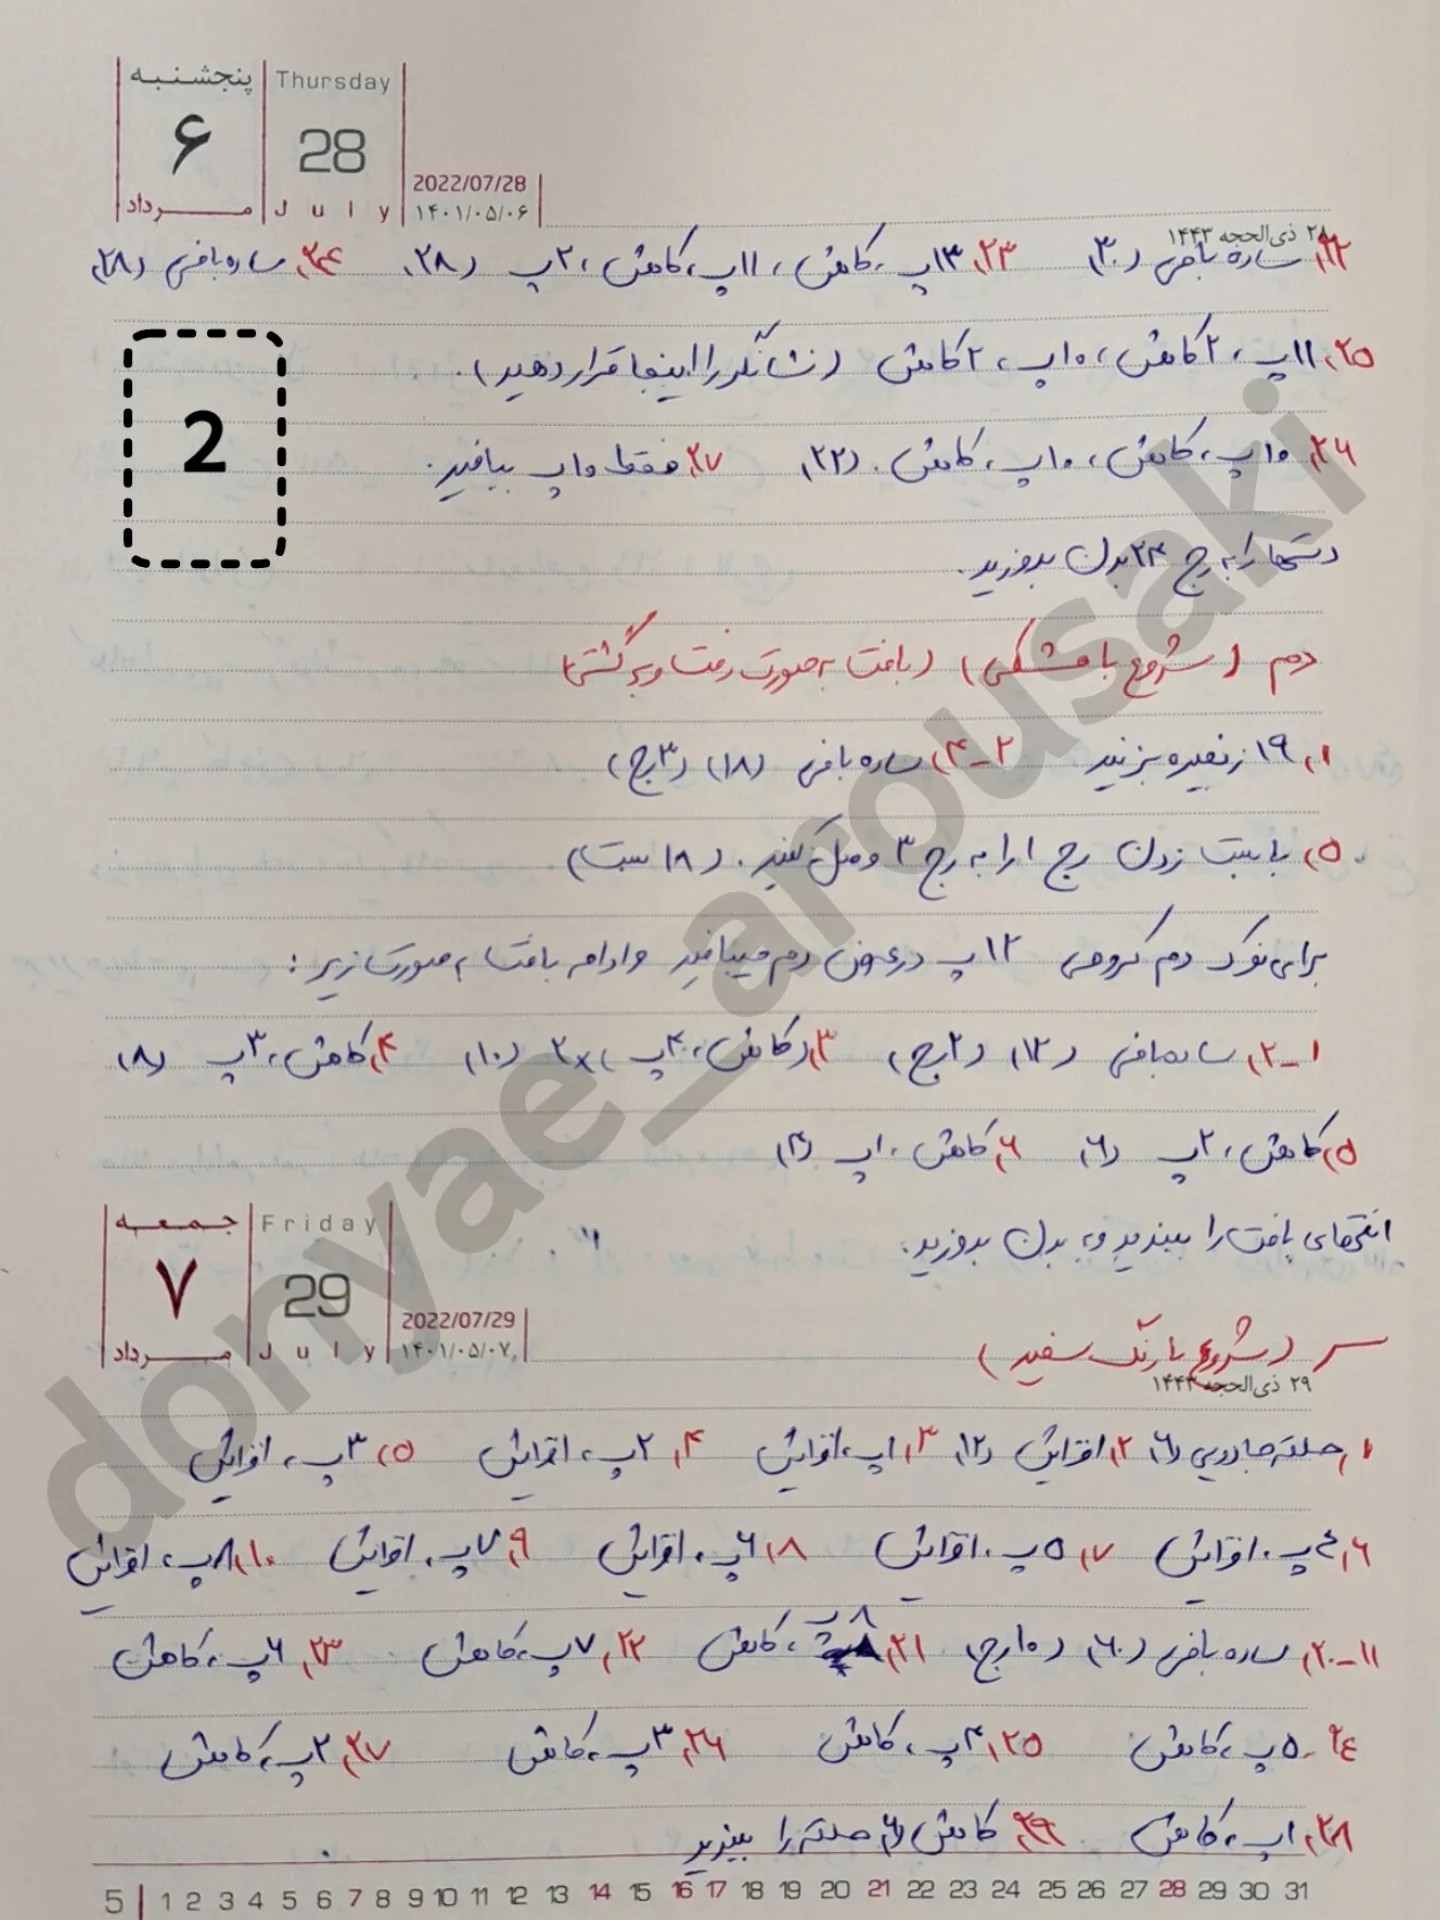 پنجشنبه Thursday
۶ 28
مرداد July 2022/07/28 ۱۴۰۱/۰۵/۰۶
۲۸ ذی‌الحجه ۱۴۴۳
۲۲) ساده بافی (۳۰) ۲۳) ۱۳پ، کاهش، ۱۱پ، کاهش، ۲پ (۲۸) ۲۴) ساده بافی (۲۸)
۲۵) ۱۱پ، ۲کاهش، ۱۰پ، ۲کاهش (نشانگر را اینجا قرار دهید).
۲۶) ۱۰پ، کاهش، ۱۰پ، کاهش. (۲۲) ۲۷) فقط ۱۰پ ببافید.
2
دستها را به رج ۲۴ بدن بدوزید.
دم (شروع با مشکی) (بافت به صورت رفت و برگشتی)
۱) ۱۹ زنجیره بزنید ۲-۴) ساده بافی (۱۸) (۳رج)
۵) با بست زدن رج ۱ را به رج ۳ وصل کنید. (۱۸ بست)
برای نوک دم کرومی ۱۲پ درعرض دم میبافید و ادامه بافت به صورت زیر:
۱-۲) ساده بافی (۱۲) (۲رج) ۳) (کاهش، ۴پ)×۲ (۱۰) ۴) کاهش، ۳پ (۸)
۵) کاهش، ۲پ (۶) ۶) کاهش، ۱پ (۴)
انتهای بافت را ببندید و به بدن بدوزید.
جمعه Friday
۷ 29
مرداد July 2022/07/29 ۱۴۰۱/۰۵/۰۷
سر (شروع با رنگ سفید)
۲۹ ذی‌الحجه ۱۴۴۳
۱) حلقه جادویی (۶) ۲) افزایش (۱۲) ۳) ۱پ، افزایش ۴) ۲پ، افزایش ۵) ۳پ، افزایش
۶) ۴پ، افزایش ۷) ۵پ، افزایش ۸) ۶پ، افزایش ۹) ۷پ، افزایش ۱۰) ۸پ، افزایش
۱۱-۲۰) ساده بافی (۶۰) (۱۰رج) ۲۱) ۸پ، کاهش ۲۲) ۷پ، کاهش ۲۳) ۶پ، کاهش
۲۴) ۵پ، کاهش ۲۵) ۴پ، کاهش ۲۶) ۳پ، کاهش ۲۷) ۲پ، کاهش
۲۸) ۱پ، کاهش ۲۹) کاهش (۶) حلقه را ببندید
5 | 1 2 3 4 5 6 7 8 9 10 11 12 13 14 15 16 17 18 19 20 21 22 23 24 25 26 27 28 29 30 31
donyae_arousaki